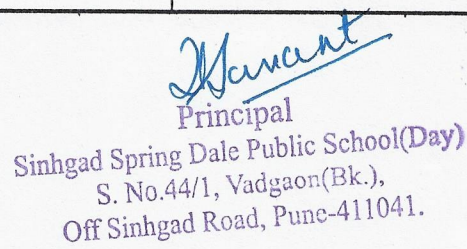 Principal
Sinhgad Spring Dale Public School(Day)
S. No.44/1, Vadgaon(Bk.),
Off Sinhgad Road, Pune-411041.